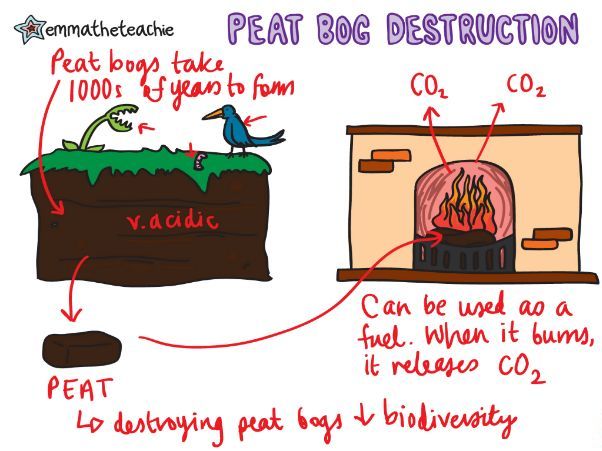 emmatheteachie
PEAT BOG DESTRUCTION
Peat bogs take
1000s of years to form
v. acidic
PEAT
CO₂
CO₂
Can be used as a
fuel. When it burns,
it releases CO₂
↳ destroying peat bogs ↓ biodiversity